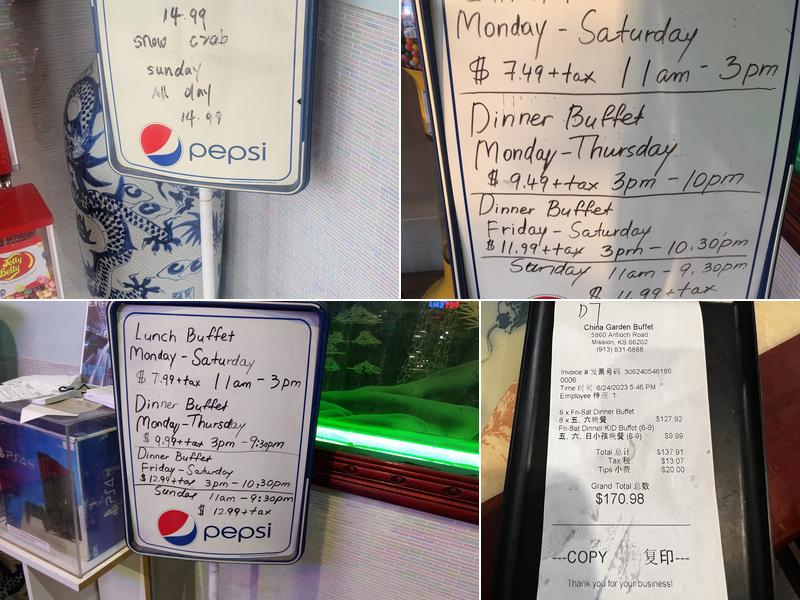 14.99
snow crab
sunday
All day
14.99
pepsi
Jelly
Belly
Monday - Saturday
$ 7.49+tax 11am - 3pm
Dinner Buffet
Monday-Thursday
$ 9.49+tax 3pm - 10pm
Dinner Buffet
Friday - Saturday
$ 11.99+tax 3pm - 10.30pm
Sunday 11am - 9.30pm
$ 11.99+tax
Lunch Buffet
Monday - Saturday
$ 7.99+tax 11am - 3pm
Dinner Buffet
Monday-Thursday
$ 9.99+tax 3pm - 9:30pm
Dinner Buffet
Friday-Saturday
$ 12.99+tax 3pm - 10:30pm
Sunday 11am - 9:30pm
$ 12.99+tax
pepsi
D7
China Garden Buffet
5860 Antioch Road
Mission, KS 66202
(913) 831-6888
Invoice # 发票号码 306240546186
0006
Time 时间 6/24/2023 5:46 PM
Employee 待应 1
8 x Fri-Sat Dinner Buffet
8 x 五. 六晚餐 $127.92
Fri-Sat Dinner KID Buffet (6-9)
五. 六. 日小孩晚餐 (6-9) $9.99
Total 总计 $137.91
Tax 税 $13.07
Tips 小费 $20.00
Grand Total 总数
$170.98
---COPY 复印---
Thank you for your business!